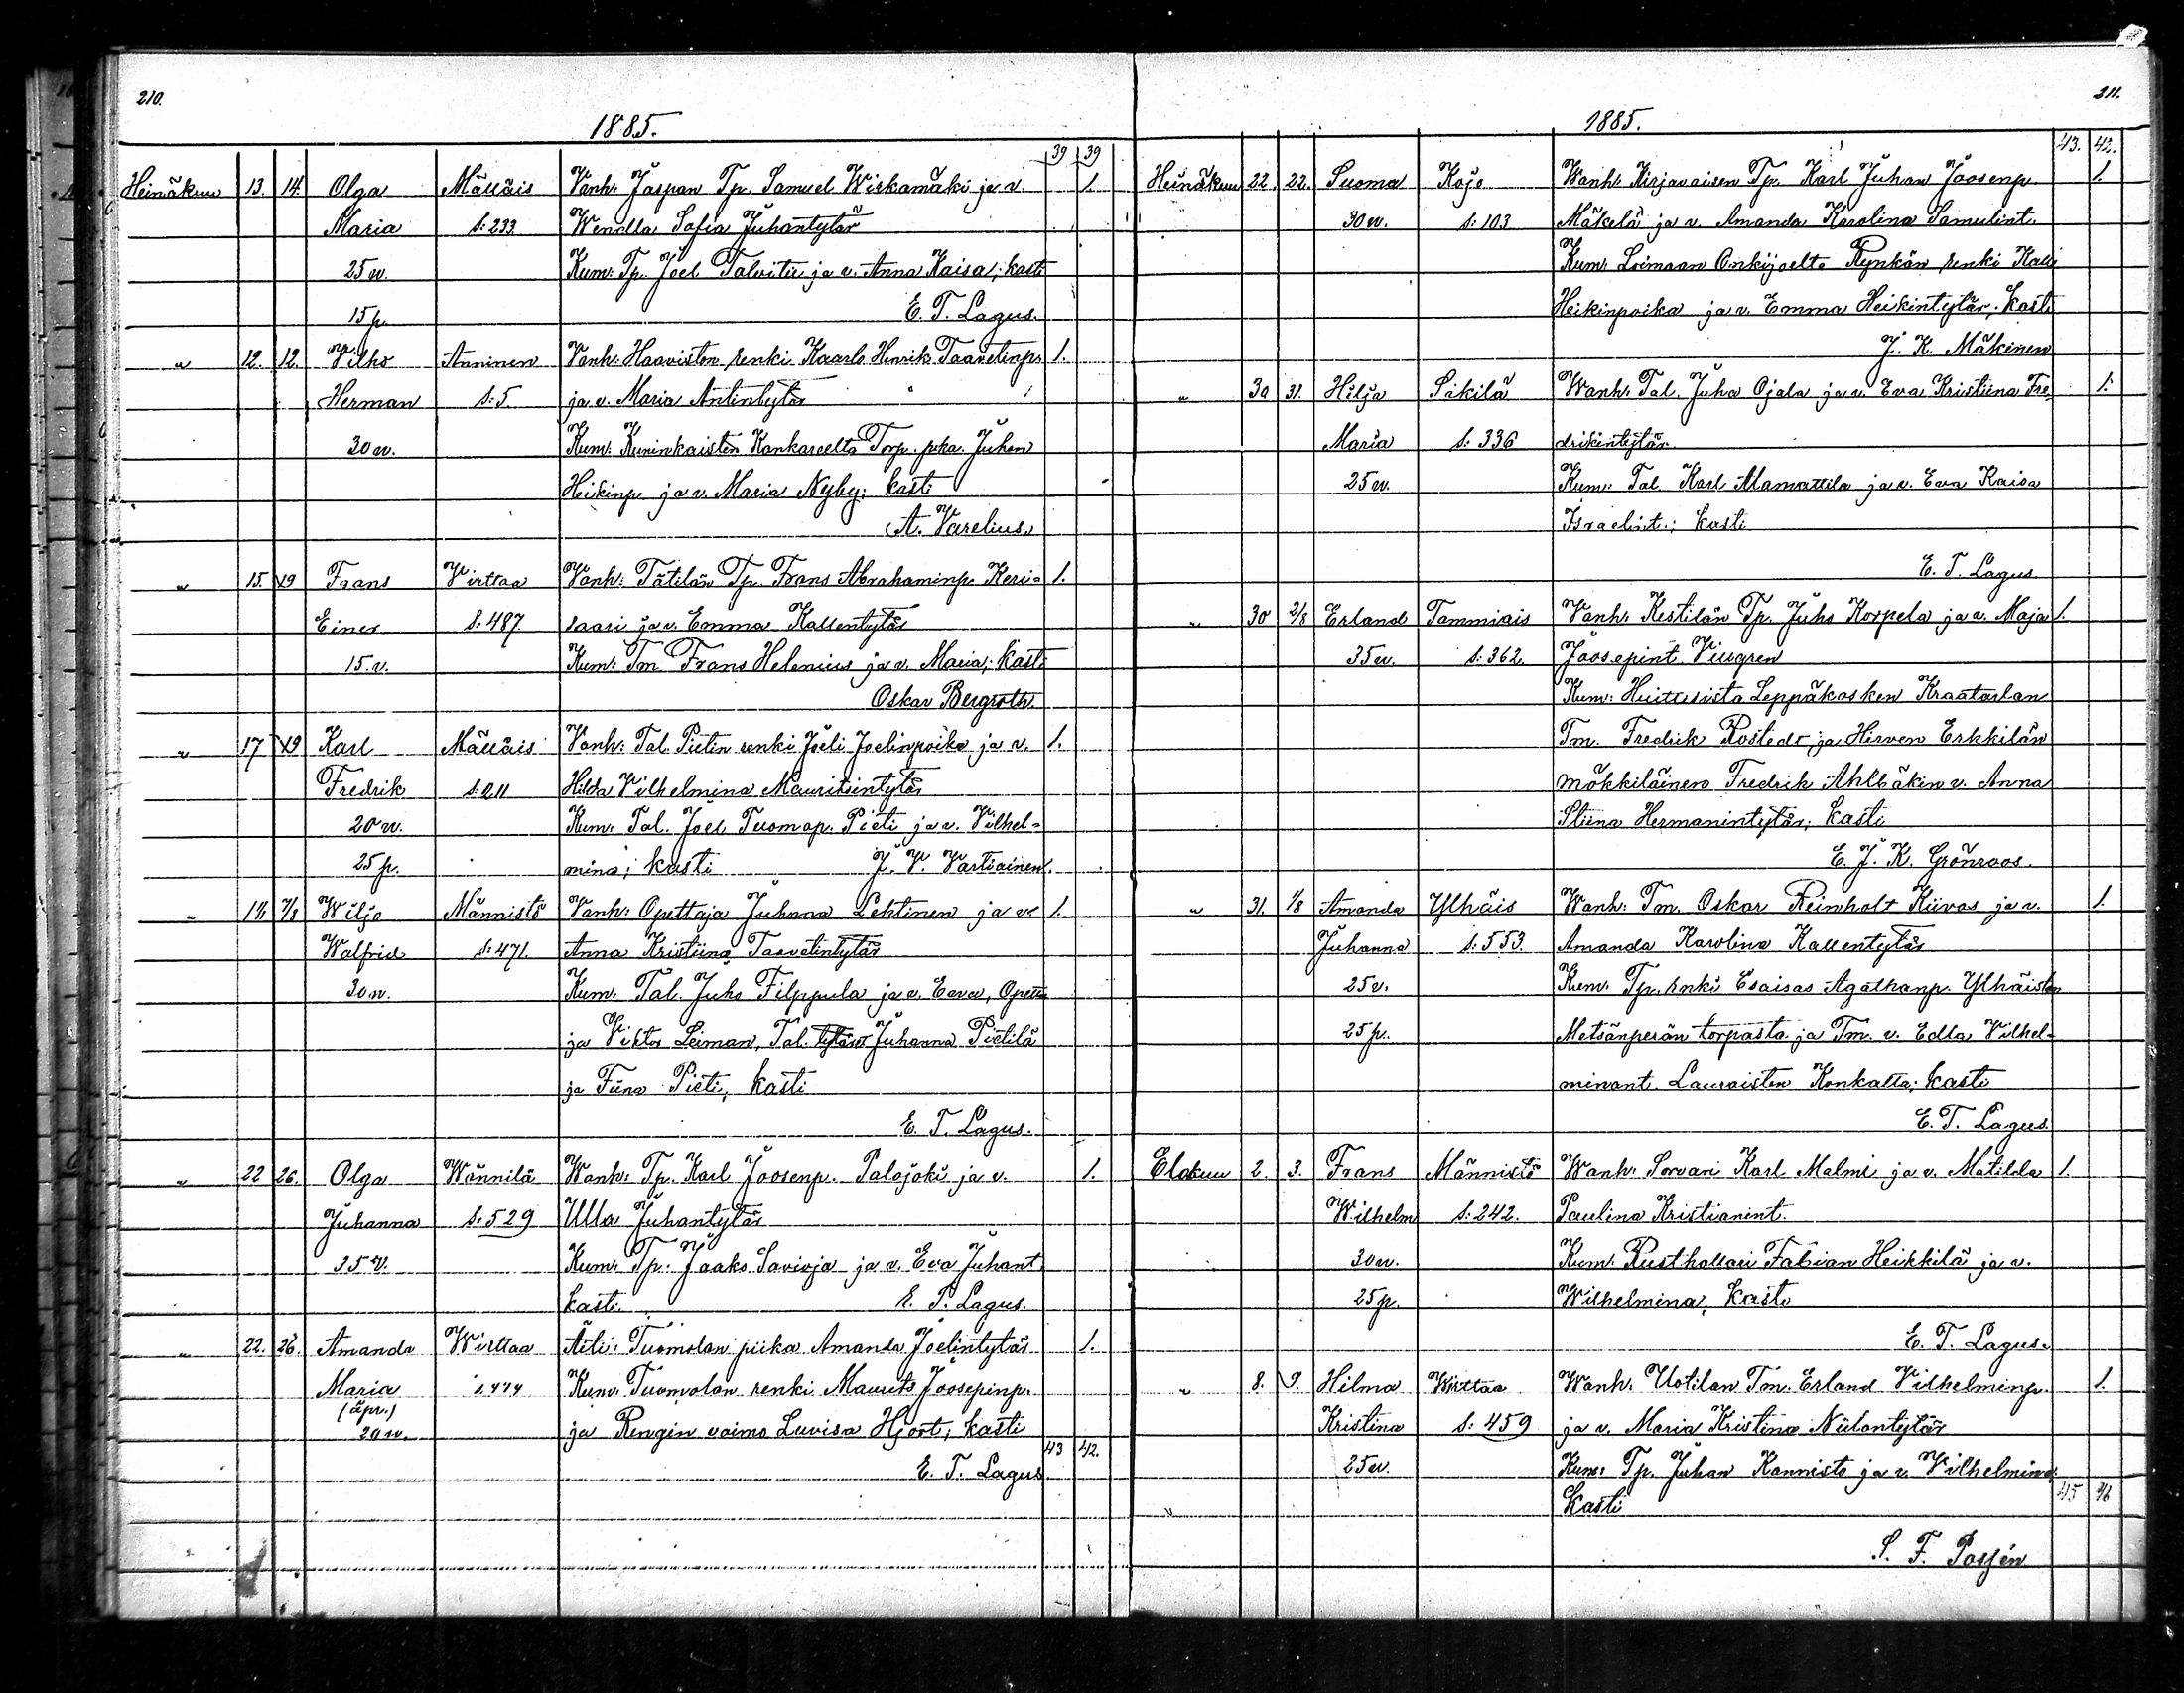 210.
1885.
39 39
Heinäkuu 13. 14. Olga Mälläis Vanh: Jaspan Tp. Samuel Wiskamäki ja v. 1.
Maria S: 233. Wendla Sofia Juhantytär
25 w. Kum: Tp. Joel Talvitie ja v. Anna Kaisa; kasti
15 p. E. T. Lagus.
" 12. 12. Vilho Anninen Vanh: Haaviston renki Kaarlo Henrik Taavetinp. 1.
Herman S: 5. ja v. Maria Antintytär
30 w. Kum: Kuninkaisten Kankareelta Torp. pka. Juhan
Heikinp. ja v. Maria Nyby; kasti
A. Varelius.
" 15. 19 Frans Virttaa Vanh: Tätilän Tp. Frans Abrahaminp. Keri= 1.
Einar S: 487. saari ja v. Emma Kallentytär
15. v. Kum: Tm Frans Helenius ja v. Maria; kasti
Oskar Bergroth.
" 17 19 Karl Mälläis Vanh: Tal. Pietin renki Joeli Joelinpoika ja v. 1.
Fredrik S: 211 Hilda Vilhelmina Mauritsintytär
20 w. Kum: Tal. Joel Tuomap. Pieti ja v. Vilhel=
25 p. mina; kasti J. V. Vartiainen.
" 14 7/8 Wiljo Männistö Vanh: Opettaja Juhana Lehtinen ja v. 1.
Walfrid S: 471. Anna Kristiina Taavetintytär
30 w. Kum: Tal. Juho Filppula ja v. Eeva, Opetta
ja Viktor Leiman, Tal. tytäret Juhanna Pietilä
ja Fiina Pieti; kasti
E. T. Lagus.
" 22 26. Olga Wännilä Wanh: Tp. Karl Joosenp. Palojoki ja v. 1.
Juhanna S: 529 Ulla Juhantytär
35 v. Kum: Tp. Jaako Savioja ja v. Eva Juhant.
kasti. E. T. Lagus.
" 22. 26. Amanda Wirttaa Äiti: Tuomolan piika Amanda Joelintytär 1.
Maria S. 474 Kum: Tuomolan renki Maurits Joosepinp.
(äpr.)
20 w. ja Rengin vaimo Luvisa Hjort; kasti
43 42.
E. T. Lagus
211.
1885.
43. 42.
Heinäkuu 22. 22. Suoma Kojo Wanh: Kirjavaisen Tp. Karl Juhan Joosenp. 1.
30 w. S: 103 Mäkelä ja v. Amanda Karolina Samulint.
Kum: Loimaan Onkijoelta Rynkän renki Kalle
Heikinpoika ja v. Emma Heikintytär; kasti
J. K. Mäkinen
" 30 31. Hilja Säkilä Wanh: Tal. Juha Ojala ja v. Eva Kristiina Fre= 1.
Maria S: 336 drikintytär
25 w. Kum: Tal. Karl Mamattila ja v. Eva Kaisa
Israelint.; kasti
E. T. Lagus
" 30 2/8 Erland Tammiais Vanh: Kestilän Tp. Juho Korpela ja v. Maja 1.
35 w. S: 362. Joosepint. Viugren
Kum: Huittisista Leppäkosken Kraatarlan
Tm. Fredrik Rostedt ja Hirven Erkkilän
mökkiläinen Fredrik Ahlbäkin v. Anna
Stiina Hermanintytär; kasti
E. J. K. Grönroos.
" 31. 1/8 Amanda Ylhäis Wanh: Tm. Oskar Reinholt Kiivas ja v. 1.
Juhanna S: 553. Amanda Karolina Kallentytär
25 v. Kum: Tp. renki Esaias Agathanp. Ylhäisten
25 p. Metsänperän torpasta ja Tm. v. Edla Vilhel=
minant. Lauroisten Konkalta; kasti
E. T. Lagus.
Elokuu 2. 3. Frans Männistö Wanh: Sorvari Karl Malmi ja v. Matilda 1.
Wilhelm S: 242. Paulina Kristianint.
30 w. Kum: Rusthollari Fabian Heikkilä ja v.
25 p. Wilhelmina; kasti
E. T. Lagus.
" 8. 9. Hilma Wirttaa Wanh: Uotilan Tm. Erland Vilhelminp. 1.
Kristina S: 459 ja v. Maria Kristina Niilontytär
25 w. Kum: Tp. Juhan Kannisto ja v. Vilhelmina;
" kasti 45 46
S. F. Passén